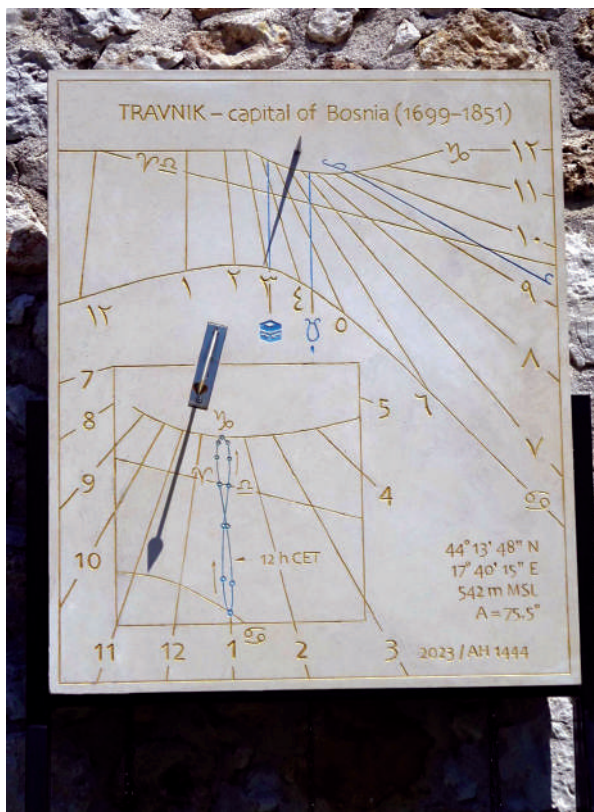 TRAVNIK – capital of Bosnia (1699–1851)
♈ ♎ ♑ ١٢
١١
١٠
٩
١٢ ١ ٢ ٣ ٤ ٥
٨
٦
٧
♋
7
8
9
10
11 12 1 2 3
4
5
♑
♈ ♎
12 h CET
♋
44° 13' 48" N
17° 40' 15" E
542 m MSL
A = 75.5°
2023 / AH 1444